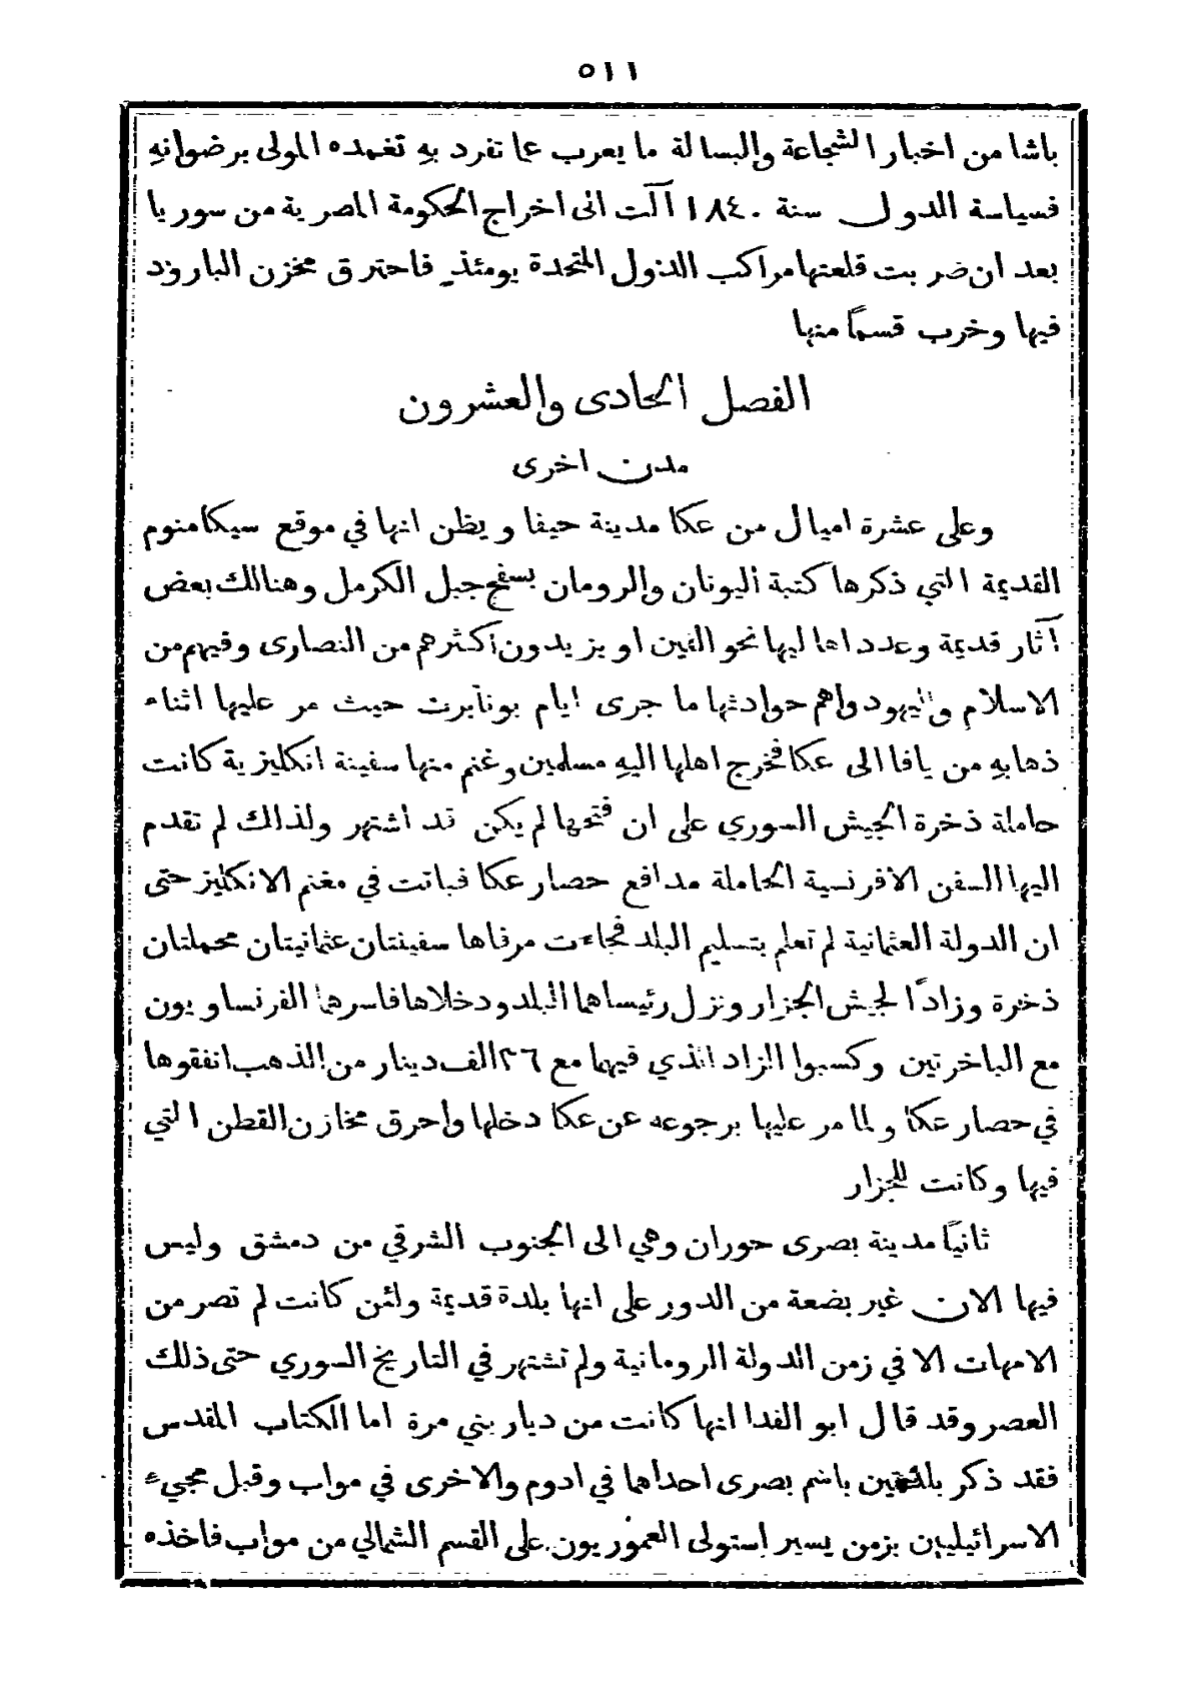 ٥١١
باشا من اخبار الشجاعة والبسالة ما يعرب عما تفرد بهِ تغمده المولى برضوانهِ
فسياسة الدول سنة ١٨٤٠ آلت الى اخراج الحكومة المصرية من سوريا
بعد ان ضربت قلعتها مراكب الدول المتحدة يومئذٍ فاحترق مخزن البارود
فيها وخرب قسمًا منها
الفصل الحادى والعشرون
مدن اخرى
وعلى عشرة اميال من عكا مدينة حيفا ويظن انها في موقع سيكامنوم
القديمة التي ذكرها كتبة اليونان والرومان بسفح جبل الكرمل وهنالك بعض
آثار قديمة وعدد اهاليها نحو الفين او يزيدون اكثرهم من النصارى وفيهم من
الاسلام واليهود واهم حوادثها ما جرى ايام بونابرت حيث مر عليها اثناء
ذهابهِ من يافا الى عكا فخرج اهلها اليهِ مسلمين وغنم منها سفينة انكليزية كانت
حاملة ذخرة الجيش السوري على ان فتحها لم يكن قد اشتهر ولذالك لم تقدم
اليها السفن الافرنسية الحاملة مدافع حصار عكا فباتت في مغنم الانكليز حتى
ان الدولة العثمانية لم تعلم بتسليم البلد فجاءت مرفاها سفينتان عثمانيتان محملتان
ذخرة وزادًا لجيش الجزار ونزل رئيساهما البلد ودخلاها فاسرهما الفرنساويون
مع الباخرتين وكسبوا الزاد الذي فيهما مع ٣٦ الف دينار من الذهب انفقوها
في حصار عكا ولما مر عليها برجوعه عن عكا دخلها واحرق مخازن القطن التي
فيها وكانت للجزار
ثانيًا مدينة بصرى حوران وهي الى الجنوب الشرقي من دمشق وليس
فيها الان غير بضعة من الدور على انها بلدة قديمة ولئن كانت لم تصر من
الامهات الا في زمن الدولة الرومانية ولم تشتهر في التاريخ السوري حتى ذلك
العصر وقد قال ابو الفدا انها كانت من ديار بني مرة اما الكتاب المقدس
فقد ذكر بلدتين باسم بصرى احداهما في ادوم والاخرى في مواب وقبل مجيء
الاسرائيليين بزمن يسير استولى العموريون على القسم الشمالي من مواب فاخذه